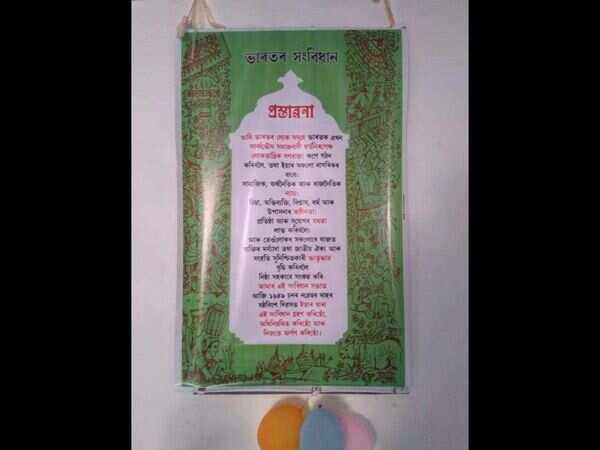 ভাৰতৰ সংবিধান
প্ৰস্তাৱনা
আমি ভাৰতৰ লোক সমূহে ভাৰতক এখন
সাৰ্বভৌম সমাজবাদী ধৰ্মনিৰপেক্ষ
লোকতান্ত্ৰিক গণৰাজ্য ৰূপে গঠন
কৰিবলৈ, তথা ইয়াৰ সকলো নাগৰিকৰ
বাবে:
সামাজিক, অৰ্থনৈতিক আৰু ৰাজনৈতিক
ন্যায়;
চিন্তা, অভিব্যক্তি, বিশ্বাস, ধৰ্ম আৰু
উপাসনাৰ স্বাধীনতা;
প্ৰতিষ্ঠা আৰু সুযোগৰ সমতা
লাভ কৰিবলৈ;
আৰু তেওঁলোকৰ সকলোৰে মাজত
ব্যক্তিৰ মৰ্য্যাদা তথা জাতীয় ঐক্য আৰু
সংহতি সুনিশ্চিতকাৰী ভ্ৰাতৃত্বভাৱ
বৃদ্ধি কৰিবলৈ
নিষ্ঠা সহকাৰে সংকল্প কৰি
আমাৰ এই সংবিধান সভাত
আজি ১৯৪৯ চনৰ নৱেম্বৰ মাহৰ
ষষ্ঠবিংশ দিৱসত ইয়াৰ দ্বাৰা
এই সংবিধান গ্ৰহণ কৰিছোঁ,
অধিনিয়মিত কৰিছোঁ আৰু
নিজকে অৰ্পণ কৰিছোঁ।